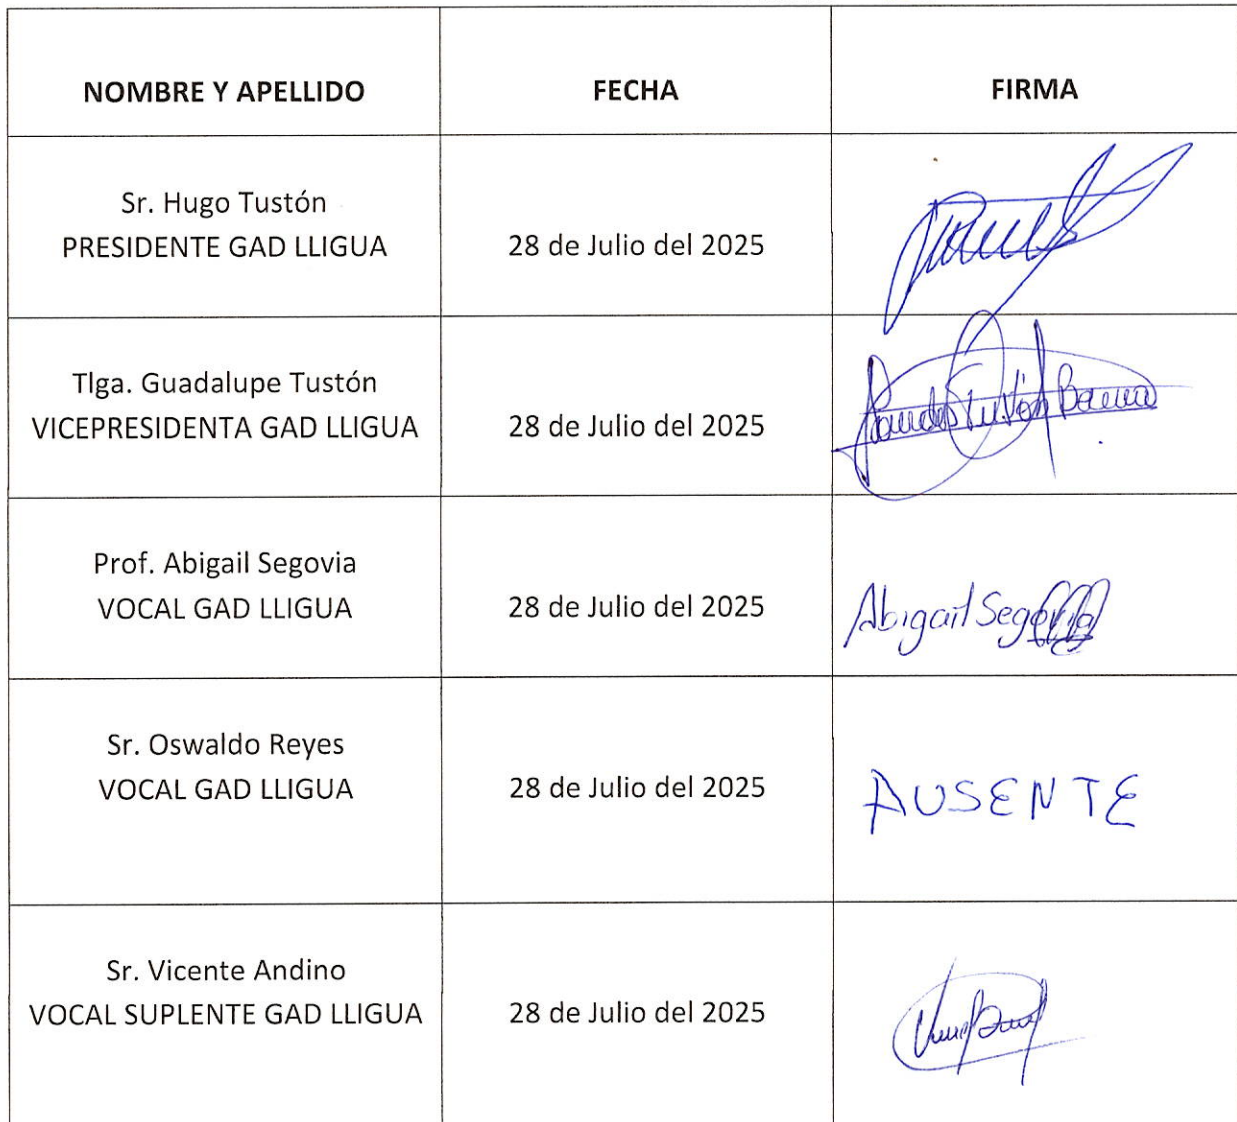 NOMBRE Y APELLIDO FECHA FIRMA
Sr. Hugo Tustón
PRESIDENTE GAD LLIGUA
28 de Julio del 2025
Tlga. Guadalupe Tustón
VICEPRESIDENTA GAD LLIGUA
28 de Julio del 2025
Prof. Abigail Segovia
VOCAL GAD LLIGUA
28 de Julio del 2025
Abigail Segovia
Sr. Oswaldo Reyes
VOCAL GAD LLIGUA
28 de Julio del 2025
AUSENTE
Sr. Vicente Andino
VOCAL SUPLENTE GAD LLIGUA
28 de Julio del 2025